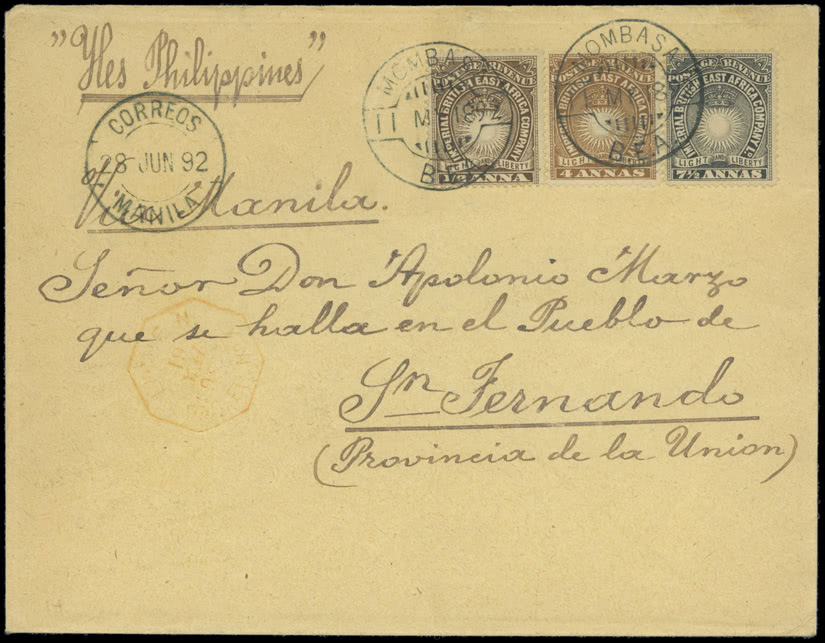 "Yles Philippines"
MOMBASA
11 MY 1892
B.E.A.
MOMBASA
MY 18
B.E.A.
POSTAGE REVENUE
IMPERIAL BRITISH EAST AFRICA COMPANY
LIGHT AND LIBERTY
1/2 ANNA
POSTAGE REVENUE
IMPERIAL BRITISH EAST AFRICA COMPANY
LIGHT AND LIBERTY
4 ANNAS
POSTAGE REVENUE
IMPERIAL BRITISH EAST AFRICA COMPANY LD
LIGHT AND LIBERTY
7½ ANNAS
CORREOS
28 JUN 92
MANILA
Via Manila.
Señor Don Apolonio Marzo
que se halla en el Pueblo de
Sn Fernando
(Provincia de la Union)